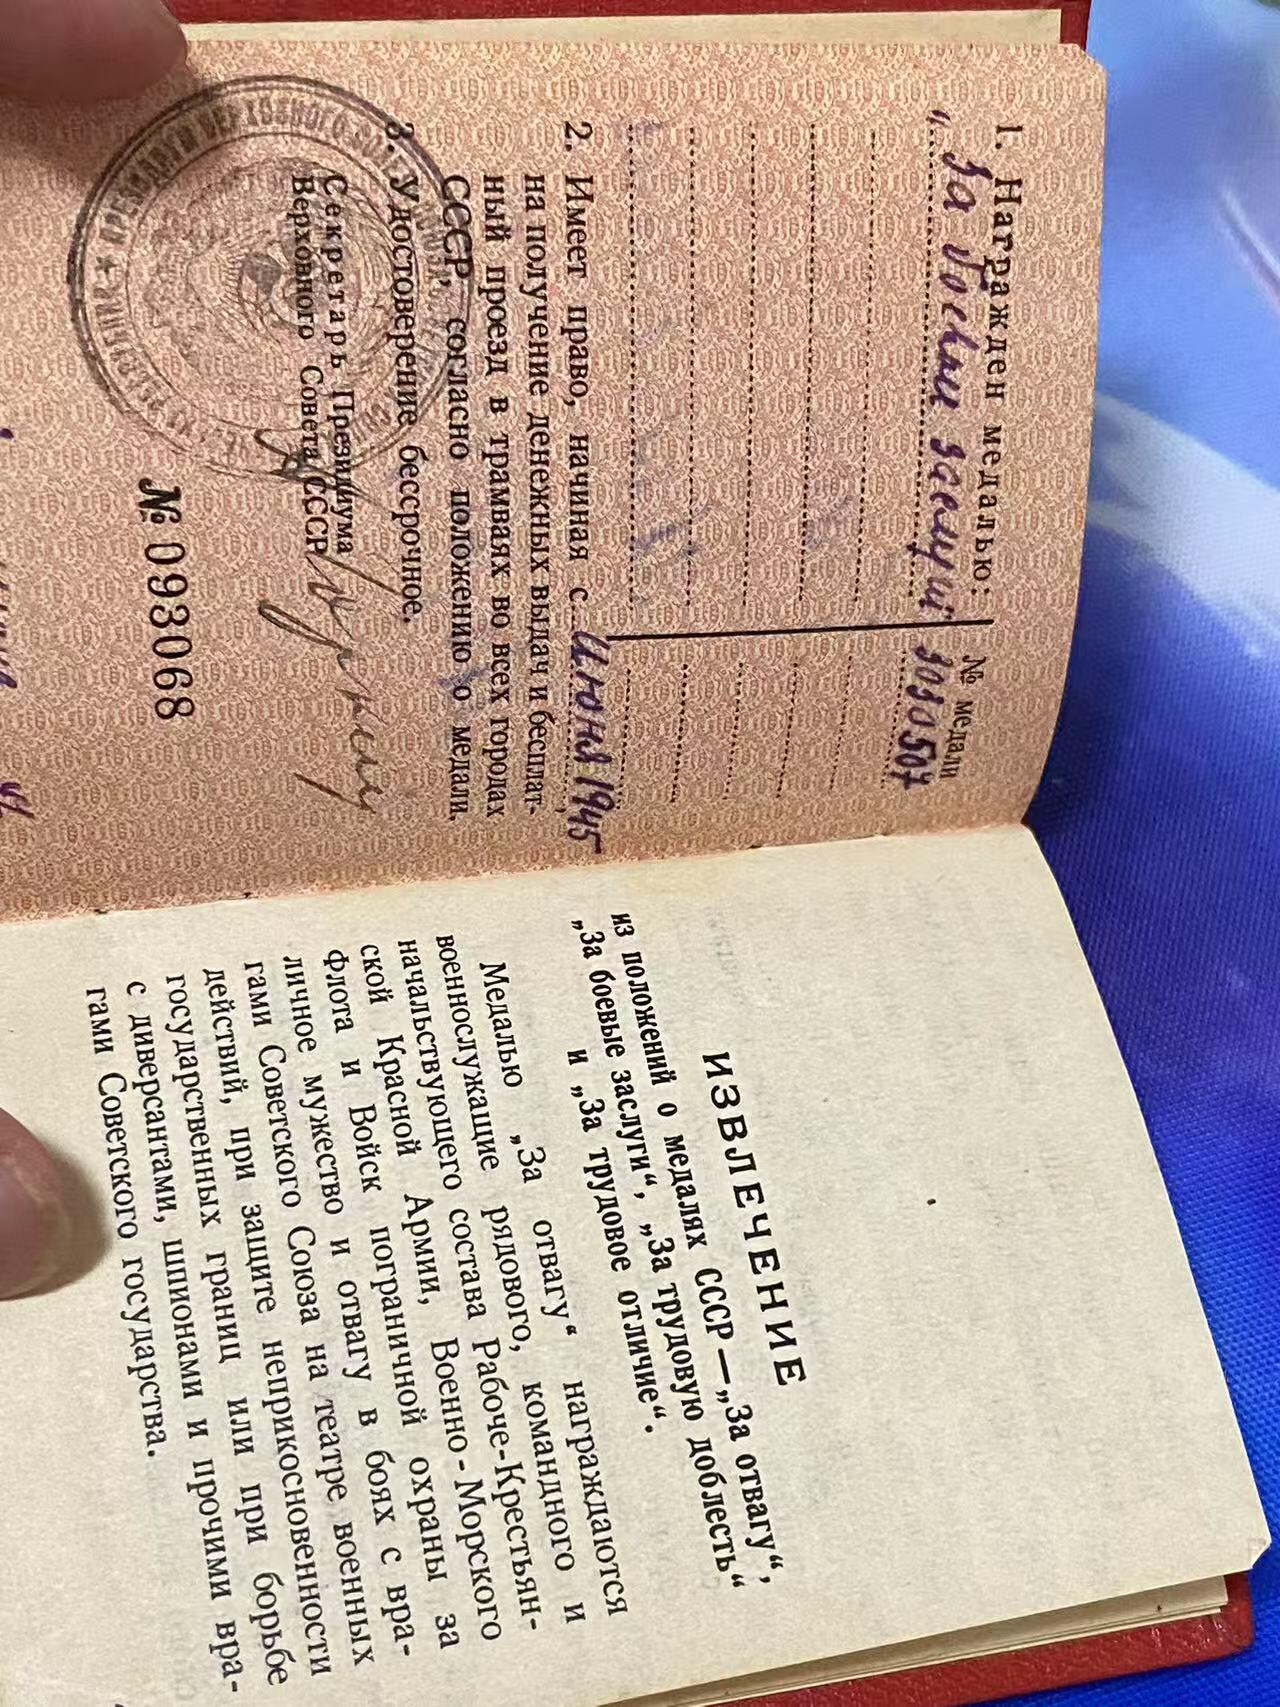 1. Награжден медалью:
№ медали
„За боевые заслуги“ 3030507
2. Имеет право, начиная с июня 1945,
на получение денежных выдач и бесплат-
ный проезд в трамваях во всех городах
СССР, согласно положению о медали.
3. Удостоверение бессрочное.
Секретарь Президиума
Верховного Совета СССР
№ 093068
ИЗВЛЕЧЕНИЕ
из положений о медалях СССР—„За отвагу“,
„За боевые заслуги“, „За трудовую доблесть“
и „За трудовое отличие“.
Медалью „За отвагу“ награждаются
военнослужащие рядового, командного и
начальствующего состава Рабоче-Крестьян-
ской Красной Армии, Военно-Морского
Флота и Войск пограничной охраны за
личное мужество и отвагу в боях с вра-
гами Советского Союза на театре военных
действий, при защите неприкосновенности
государственных границ или при борьбе
с диверсантами, шпионами и прочими вра-
гами Советского государства.